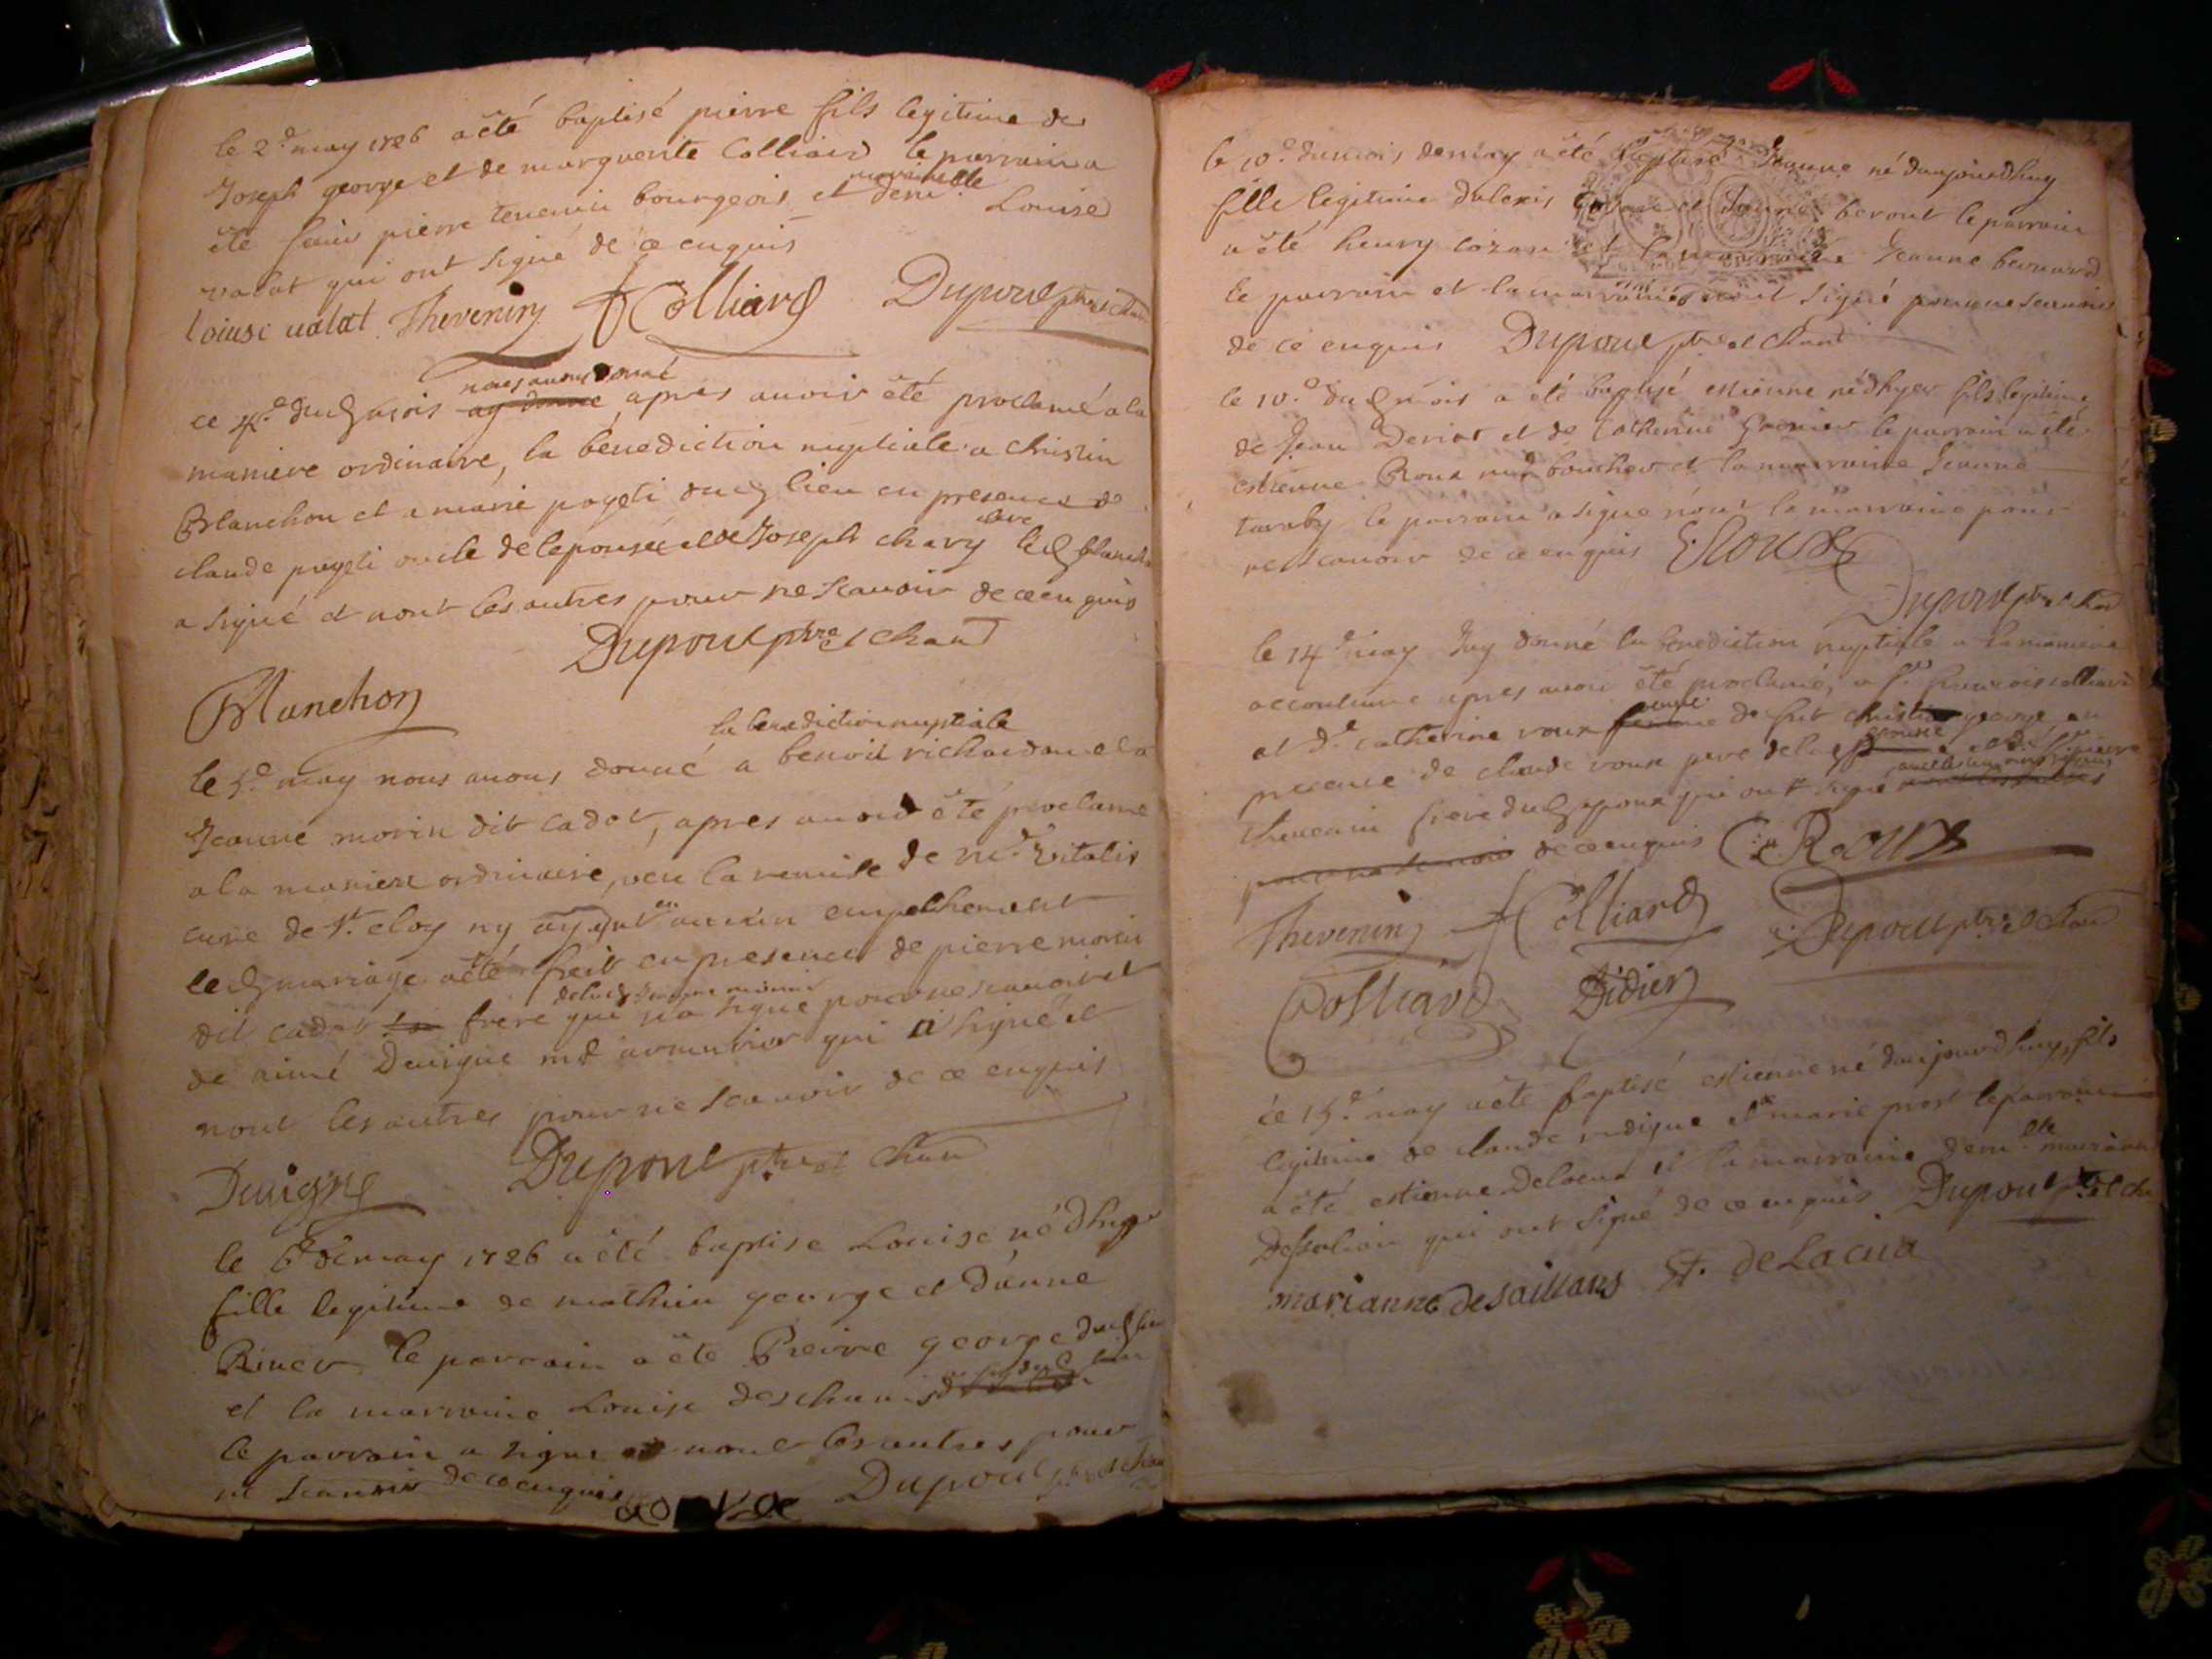 le 2e may 1726 a êté baptisé pierre fils legitime de
Joseph george et de marguerite Colliard le parrain a
êté sieur pierre tevenin bourgeois et marraine demlle Louise
valat qui ont signé de ce enquis
loiuse ualat Thevenin Colliard Dupont ptre et chan
ce 4e dud mois ay donné nous avons donné apres avoir êté proclamé a la
maniere ordinaire, la benediction nuptiale a Christin
Blanchon et a marie pogeti dud lieu en presence de
claude pogeti oncle de lepousée et de Joseph chavy led blanchon
a signé et nont les autres pour ne scavoir de ce enquis
Dupont ptre et chan
Blanchon
la benediction nuptiale
le 5e may nous avons donné a benoit richard et a
Jeanne morin dit cadet, apres avoir êté proclamé
a la maniere ordinaire, veu la remise de mr vitalis
curé de st eloy ny ayant eu aucun empechement
led mariage a êté fait en presence de pierre morin
dit cadet frere de lad Jeanne morin qui n'a signé pour ne scavoir et
de aimé Devigne md armurier qui a signé et
nont les autres pour ne scavoir de ce enquis
Devigne Dupont ptre et chan
le 6e de may 1726 a êté baptise Louise né dhyer
fille legitime de mathieu george et danne
River le parrain a êté Pierre george dud lieu
et la marraine Louise deschamps
le parrain a signé et nont les autres pour
ne scavoir de ce enquis Dupont ptre et chan
le 10e du mois de may a êté baptisé Jeanne né daujourdhuy
fille legitime dalexis et Jeanne beront le parrain
a êté henry cozan et la marraine Jeanne bernard
le parrain et la marraine nont signé pour ne scavoir
de ce enquis Dupont ptre et chan
le 10e dud mois a êté baptisé estienne né dhyer fils legitime
de Jean Deriot et de Catherine Grenier le parrain a êté
estienne Roux md boucher et la marraine Jeanne
taraby le parrain a signé nont la marraine pour
ne scavoir de ce enquis E Roux
Dupont ptre et chan
le 14e may Jay donné la benediction nuptiale a la maniere
accoutumé apres avoir êté proclamé, a sr francois colliard
et de catherine roux veuve de fut christin george en
presence de claude roux pere de lad epouse et de sr pierre
thevenin frere dud epoux qui ont signé
de ce enquis C Roux
Thevenin Colliard Dupont ptre et chan
Colliard Didier
ce 15e may a êté baptisé estienne né daujourdhuy, fils
legitime de claude rodigue et marie prost le parrain
a êté estienne Delacua et la marraine demlle mariane
Desalian qui ont signé de ce enquis Dupont ptre et chan
marianne desaillans St. de Lacua